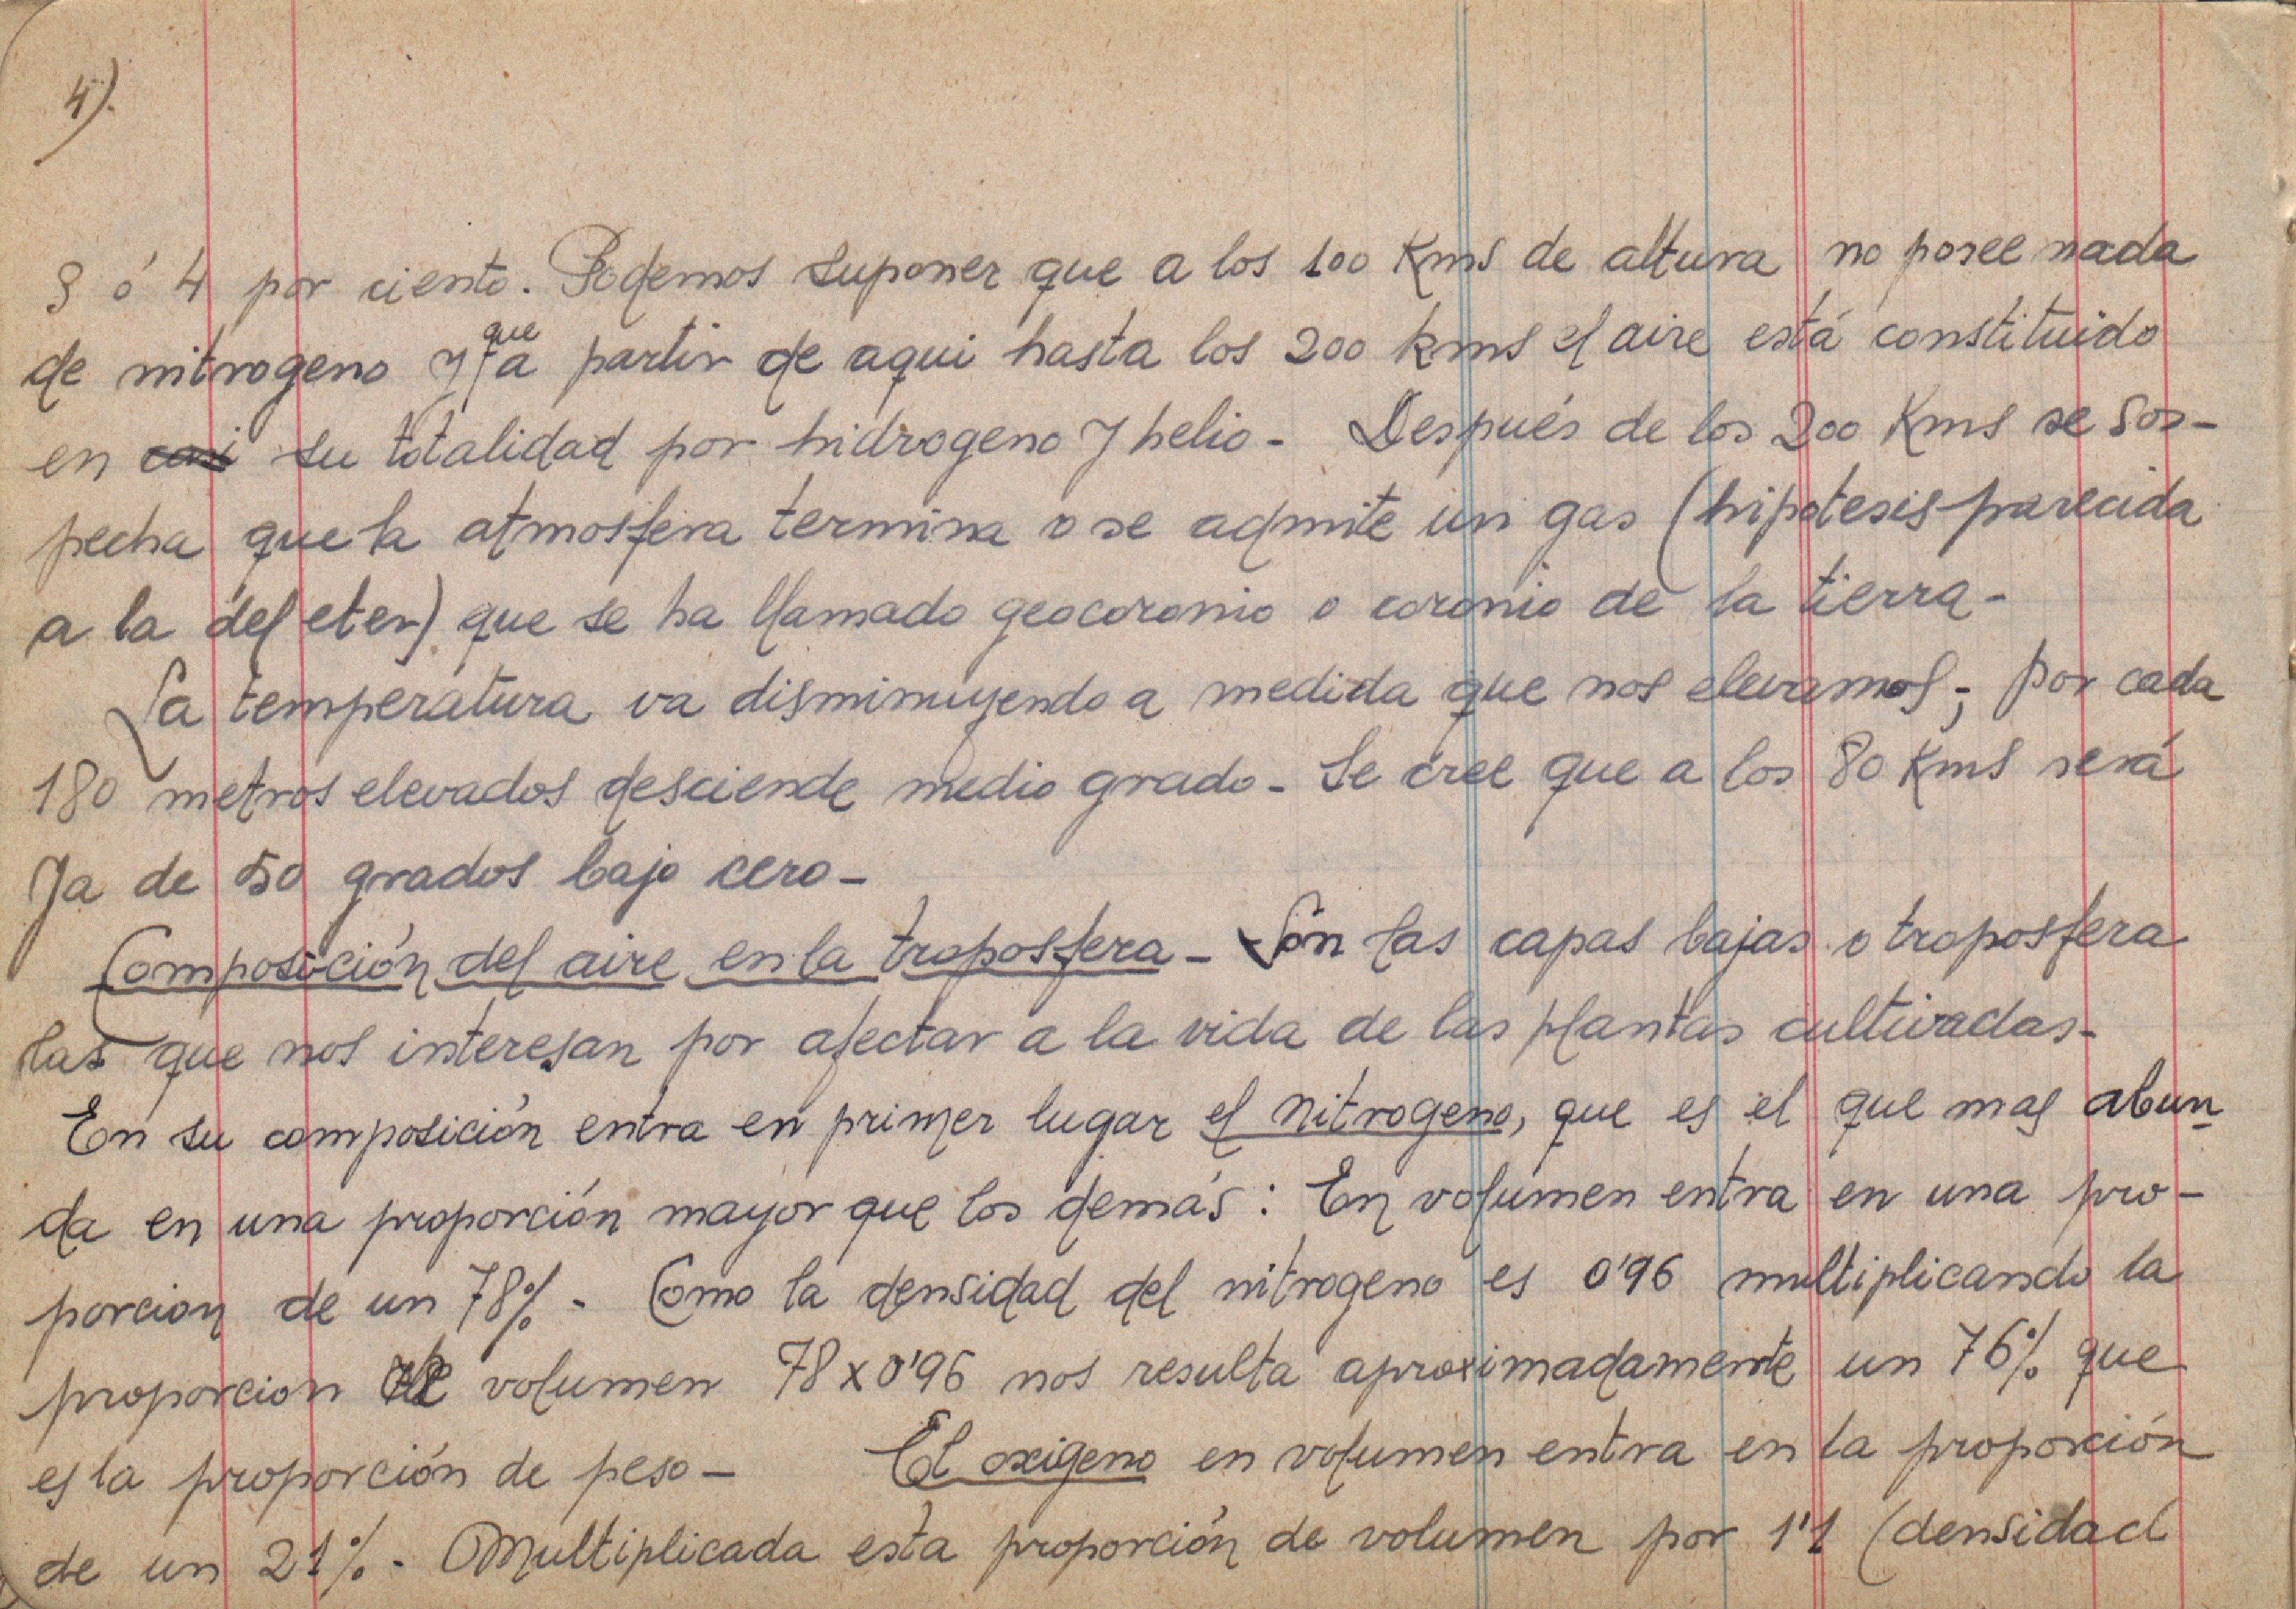 4).
3 ó 4 por ciento. Podemos suponer que a los 100 Kms de altura no posee nada
de nitrogeno y que a partir de aqui hasta los 200 kms el aire está constituido
en casi su totalidad por hidrogeno y helio - Después de los 200 Kms se sos-
pecha que la atmosfera termina o se admite un gas (hipotesis parecida
a la del eter) que se ha llamado geocoronio o coronio de la tierra -
La temperatura va disminuyendo a medida que nos elevamos; por cada
180 metros elevados desciende medio grado - Se cree que a los 80 Kms será
ya de 50 grados bajo cero -
Composición del aire en la troposfera - Son las capas bajas o troposfera
las que nos interesan por afectar a la vida de las plantas cultivadas -
En su composición entra en primer lugar el nitrogeno, que es el que mas abun-
da en una proporción mayor que los demás: En volumen entra en una pro-
porcion de un 78% - Como la densidad del nitrogeno es 0'96 multiplicando la
proporcion de volumen 78 x 0'96 nos resulta aproximadamente un 76% que
es la proporción de peso - El oxigeno en volumen entra en la proporción
de un 21% - Multiplicada esta proporción de volumen por 1'1 (densidad